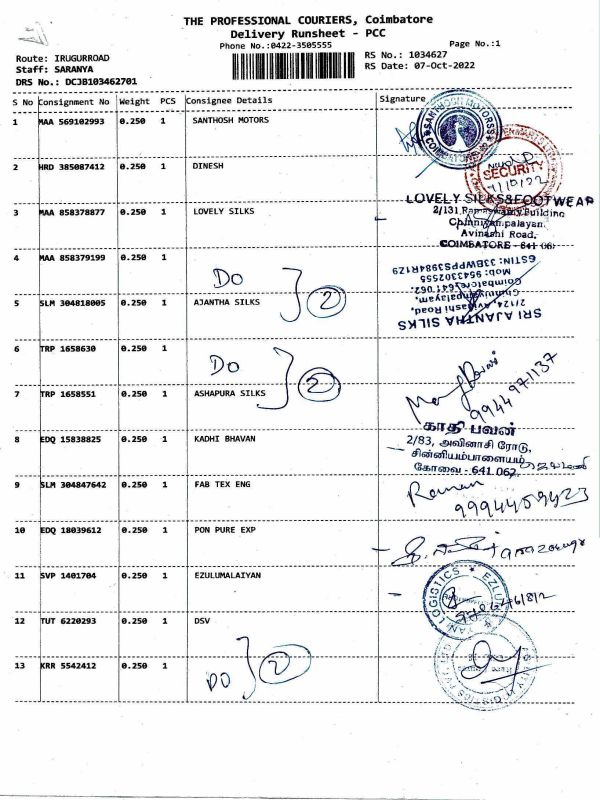 THE PROFESSIONAL COURIERS, Coimbatore
Delivery Runsheet - PCC
Phone No.:0422-3505555
Page No.:1
Route: IRUGURROAD
Staff: SARANYA
DRS No.: DCJB103462701
RS No.: 1034627
RS Date: 07-Oct-2022
S No Consignment No Weight PCS Consignee Details Signature
1 MAA 569102993 0.250 1 SANTHOSH MOTORS
SANTHOSH MOTORS
COIMBATORE
2 HRD 385087412 0.250 1 DINESH
SECURITY
3 MAA 858378877 0.250 1 LOVELY SILKS
LOVELY SILKS&FOOTWEAR
2/131, Ramaswamy Building
Chinniyampalayam,
Avinashi Road,
COIMBATORE - 641 062
4 MAA 858379199 0.250 1
DO
2
5 SLM 304818005 0.250 1 AJANTHA SILKS
SRI AJANTHA SILKS
2/124, Avinashi Road,
Chinniyampalayam,
Coimbatore-641 062.
Mob: 9543302555
GSTIN: 33BWPPS3984R1Z9
6 TRP 1658630 0.250 1
DO
2
7 TRP 1658551 0.250 1 ASHAPURA SILKS
9944971137
8 EDQ 15838825 0.250 1 KADHI BHAVAN
காதி பவன்
2/83, அவினாசி ரோடு,
சின்னியம்பாளையம்,
கோவை - 641 062
9 SLM 304847642 0.250 1 FAB TEX ENG
Raman
9994459423
10 EDQ 18039612 0.250 1 PON PURE EXP
11 SVP 1401704 0.250 1 EZULUMALAIYAN
LOGISTICS
12 TUT 6220293 0.250 1 DSV
2
13 KRR 5542412 0.250 1
DO